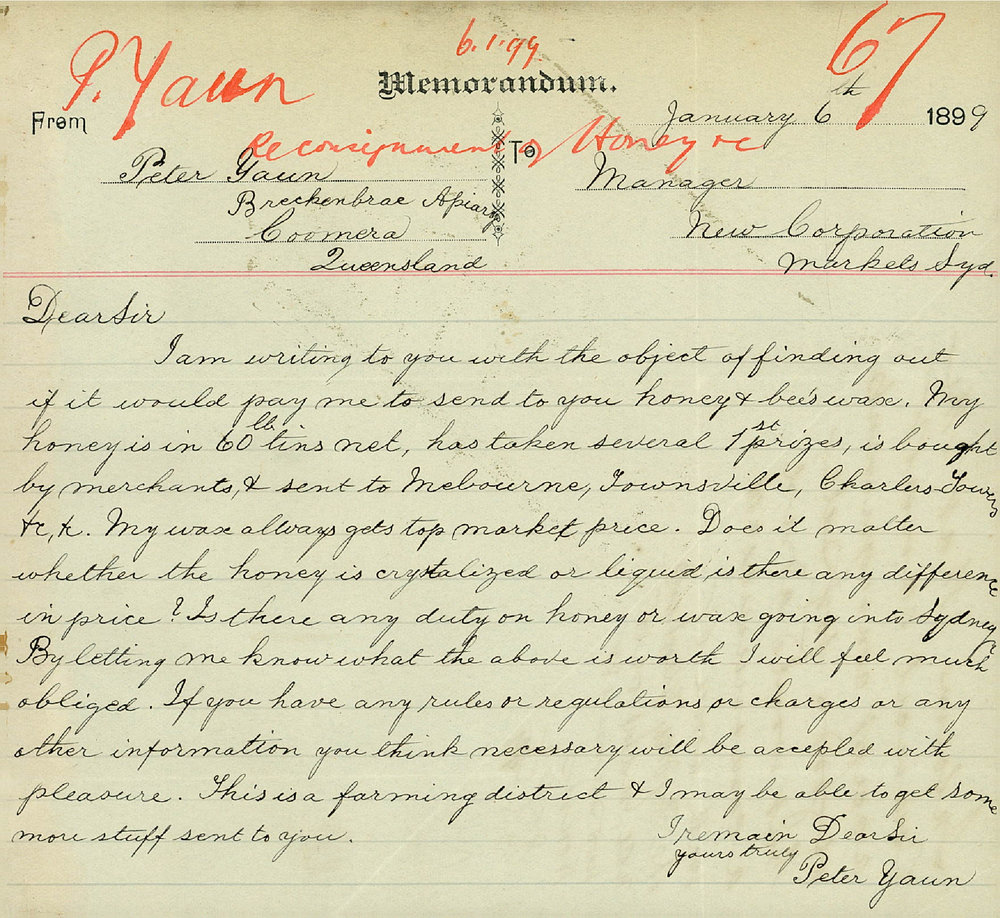 P. Yaun
6.1.99
67
Memorandum.
From
January 6th 1899
Re consignment of Honey &c
To
Peter Yaun
Manager
Breckenbrae Apiary
Coomera
New Corporation
Queensland
Markets Syd.
Dear Sir
I am writing to you with the object of finding out
if it would pay me to send to you honey & bee's wax. My
honey is in 60 lb tins net, has taken several 1st prizes, is bought
by merchants, & sent to Mebourne, Townsville, Charles Towers
&c, &. My wax always gets top market price. Does it matter
whether the honey is crystalized or liquid is there any difference
in price? Is there any duty on honey or wax going into Sydney?
By letting me know what the above is worth I will feel much
obliged. If you have any rules or regulations or charges or any
other information you think necessary will be accepted with
pleasure. This is a farming district & I may be able to get some
more stuff sent to you.
I remain Dear Sir
yours truly
Peter Yaun